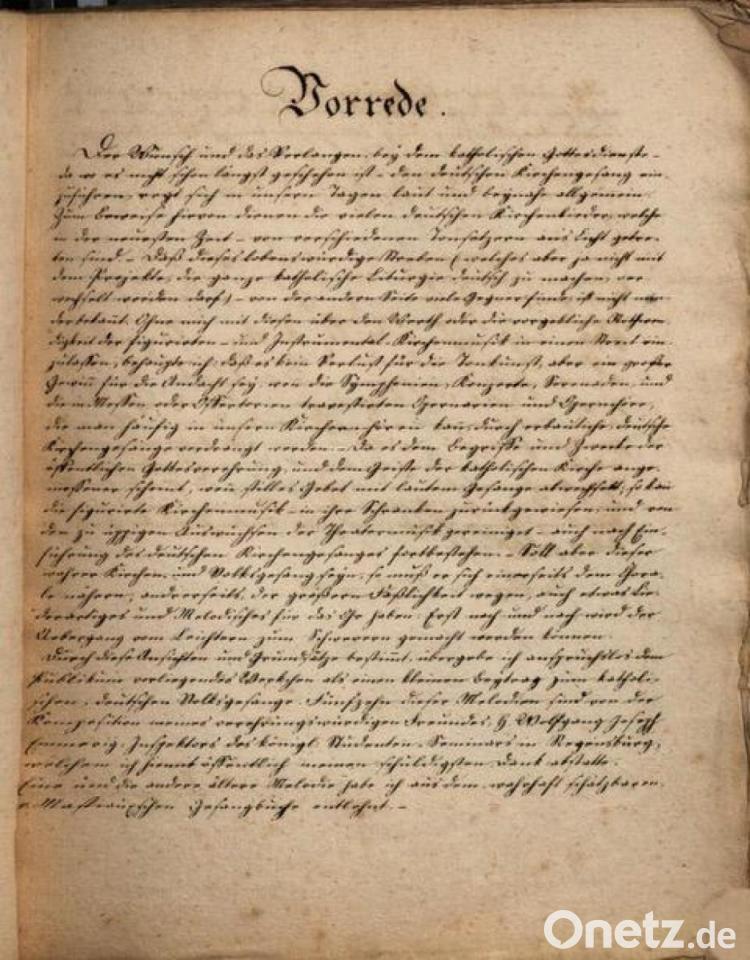 Vorrede.
Der Wunsch und das Verlangen, bey dem katholischen Gottesdienste –
da wo es nicht schon längst geschehen ist – den deutschen Kirchengesang ein-
zuführen, regt sich in unsern Tagen laut und beynahe allgemein.
Zum Beweise hievon dienen die vielen deutschen Kirchenlieder, welche
in der neuesten Zeit – von verschiedenen Tonsetzern ans Licht getre-
ten sind. – Daß dieses lobenswürdige Streben (welches aber ja nicht mit
dem Projekte, die ganze katholische Liturgie deutsch zu machen, ver-
wechselt werden darf) – von der andern Seite viele Gegner finde, ist nicht min-
der bekant. Ohne mich mit diesen über den Werth oder die vorgebliche Nothwen-
digkeit der figurirten – und Instrumental-Kirchenmusik in einen Streit ein-
zulassen, behaupte ich, daß es kein Verlust für die Tonkunst, aber ein großer
Gewin für die Andacht sey, wen die Symphonien, Konzerte, Serenaden, und
die in Messen oder Offertorien travestirten Opernarien und Opernchöre,
die man häufig in unsern Kirchen hören kan, durch erbauliche, deutsche
Kirchengesänge verdrängt werden. – Da es dem Begriffe und Zwecke der
öffentlichen Gottesverehrung, und dem Geiste der katholischen Kirche ange-
messener scheint, wen stilles Gebet mit lautem Gesange abwechselt; so kan
die figurirte Kirchenmusik – in ihre Schranken zurückgewiesen, und von
den zu üppigen Auswüchsen der Theatermusik gereiniget – auch nach Ein-
führung des deutschen Kirchengesanges fortbestehen. – Soll aber dieser
wahrer Kirchen- und Volksgesang seyn, so muß er sich einerseits dem Chora-
le nähern, andrerseits, der größern Faßlichkeit wegen, auch etwas Lie-
derartiges und Melodisches für das Ohr haben. Erst nach und nach wird der
Uebergang vom Leichtern zum Schwerern gemacht werden können.
Durch diese Ansichten und Grundsätze bestimt, übergebe ich anspruchslos dem
Publikum vorliegendes Werkchen als einen kleinen Beytrag zum katholi-
schen, deutschen Volksgesange. Fünfzehn dieser Melodien sind von der
Komposition meines verehrungswürdigen Freundes, H. Wolfgang Joseph
Emmerig, Inspektors des königl. Studenten-Seminars in Regensburg,
welchem ich hiemit öffentlich meinen schuldigsten Dank abstatte.
Eine und die andere ältere Melodie habe ich aus dem wahrhaft schätzbaren
v. Mastiauxschen Gesangbuche entlehnt. –
Onetz.de